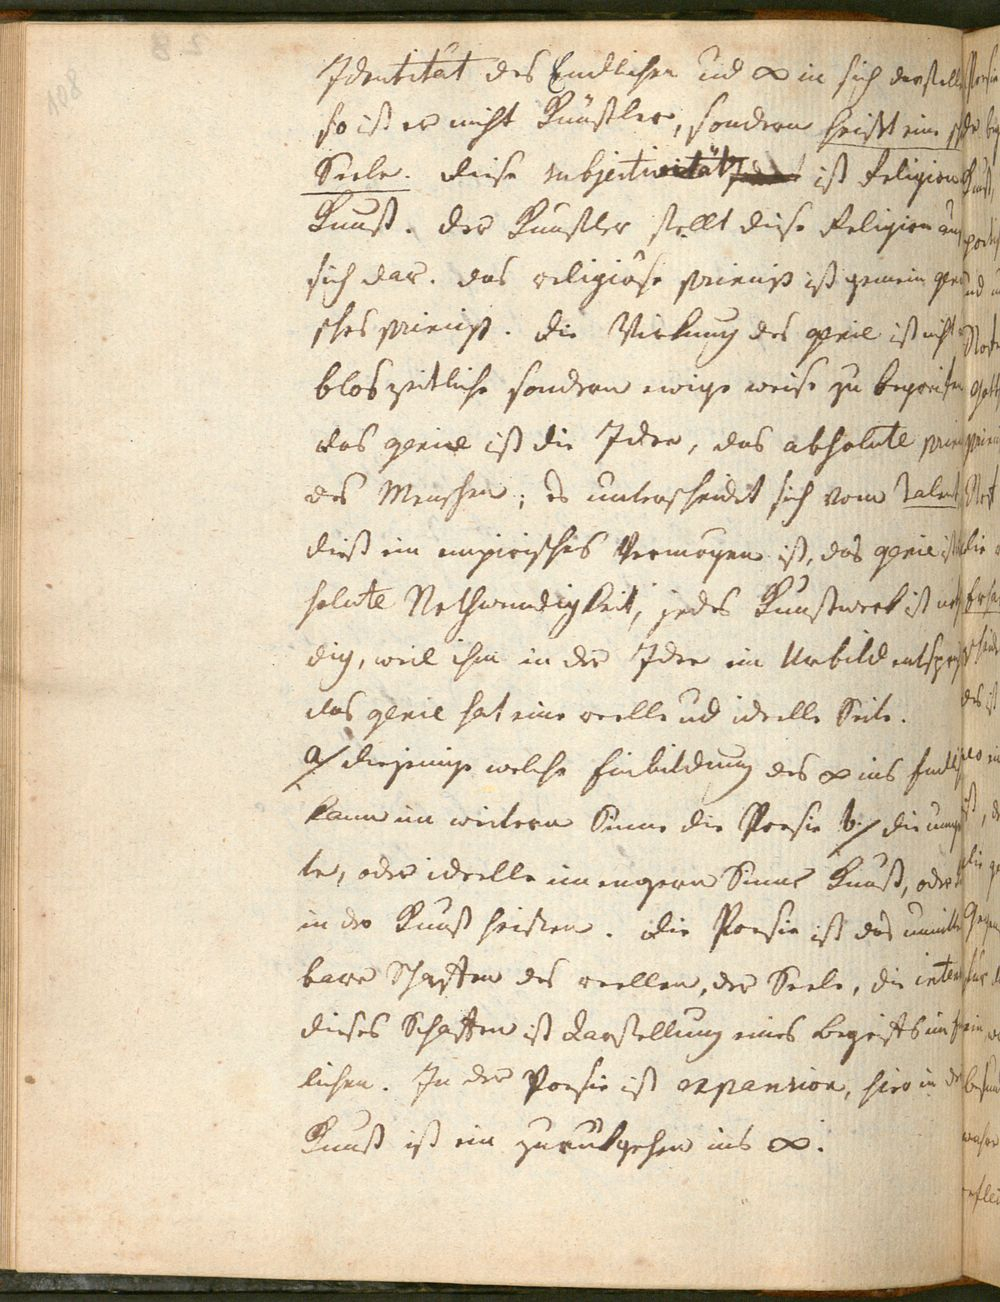 Identität des Endlichen und ∞ in sich darstellt
so ist er nicht Künstler, sondern heißt eine
Seele. diese subjectivität ist Religion
Kunst. der Künstler stellt diese Religion
sich dar. das religiöse princip ist gemein
sches princip. die Wirkung des genie ist nicht
blos zeitliche sondern ewige weise zu begreifen
das genie ist die Idee, das absolute
des Menschen; es unterscheidet sich vom Talent
dieß ein empirisches Vermögen ist, das genie ist
solute Nothwendigkeit, jedes Kunstwerk ist
dig, weil ihm in der Idee ein Urbild
das genie hat eine reelle und ideelle Seite.
a/ diejenige welche Einbildung des ∞ ins
kann im weitern Sinne die Poesie b/ die
te, oder ideelle im engern Sinne Kunst, oder
in der Kunst heissen. die Poesie ist das
bare Schaffen des reellen, der Seele, die
dieses Schaffen ist darstellung eines begrifs im
lichen. In der Poesie ist expansion, hier in der
Kunst ist ein zurükgehen ins ∞.